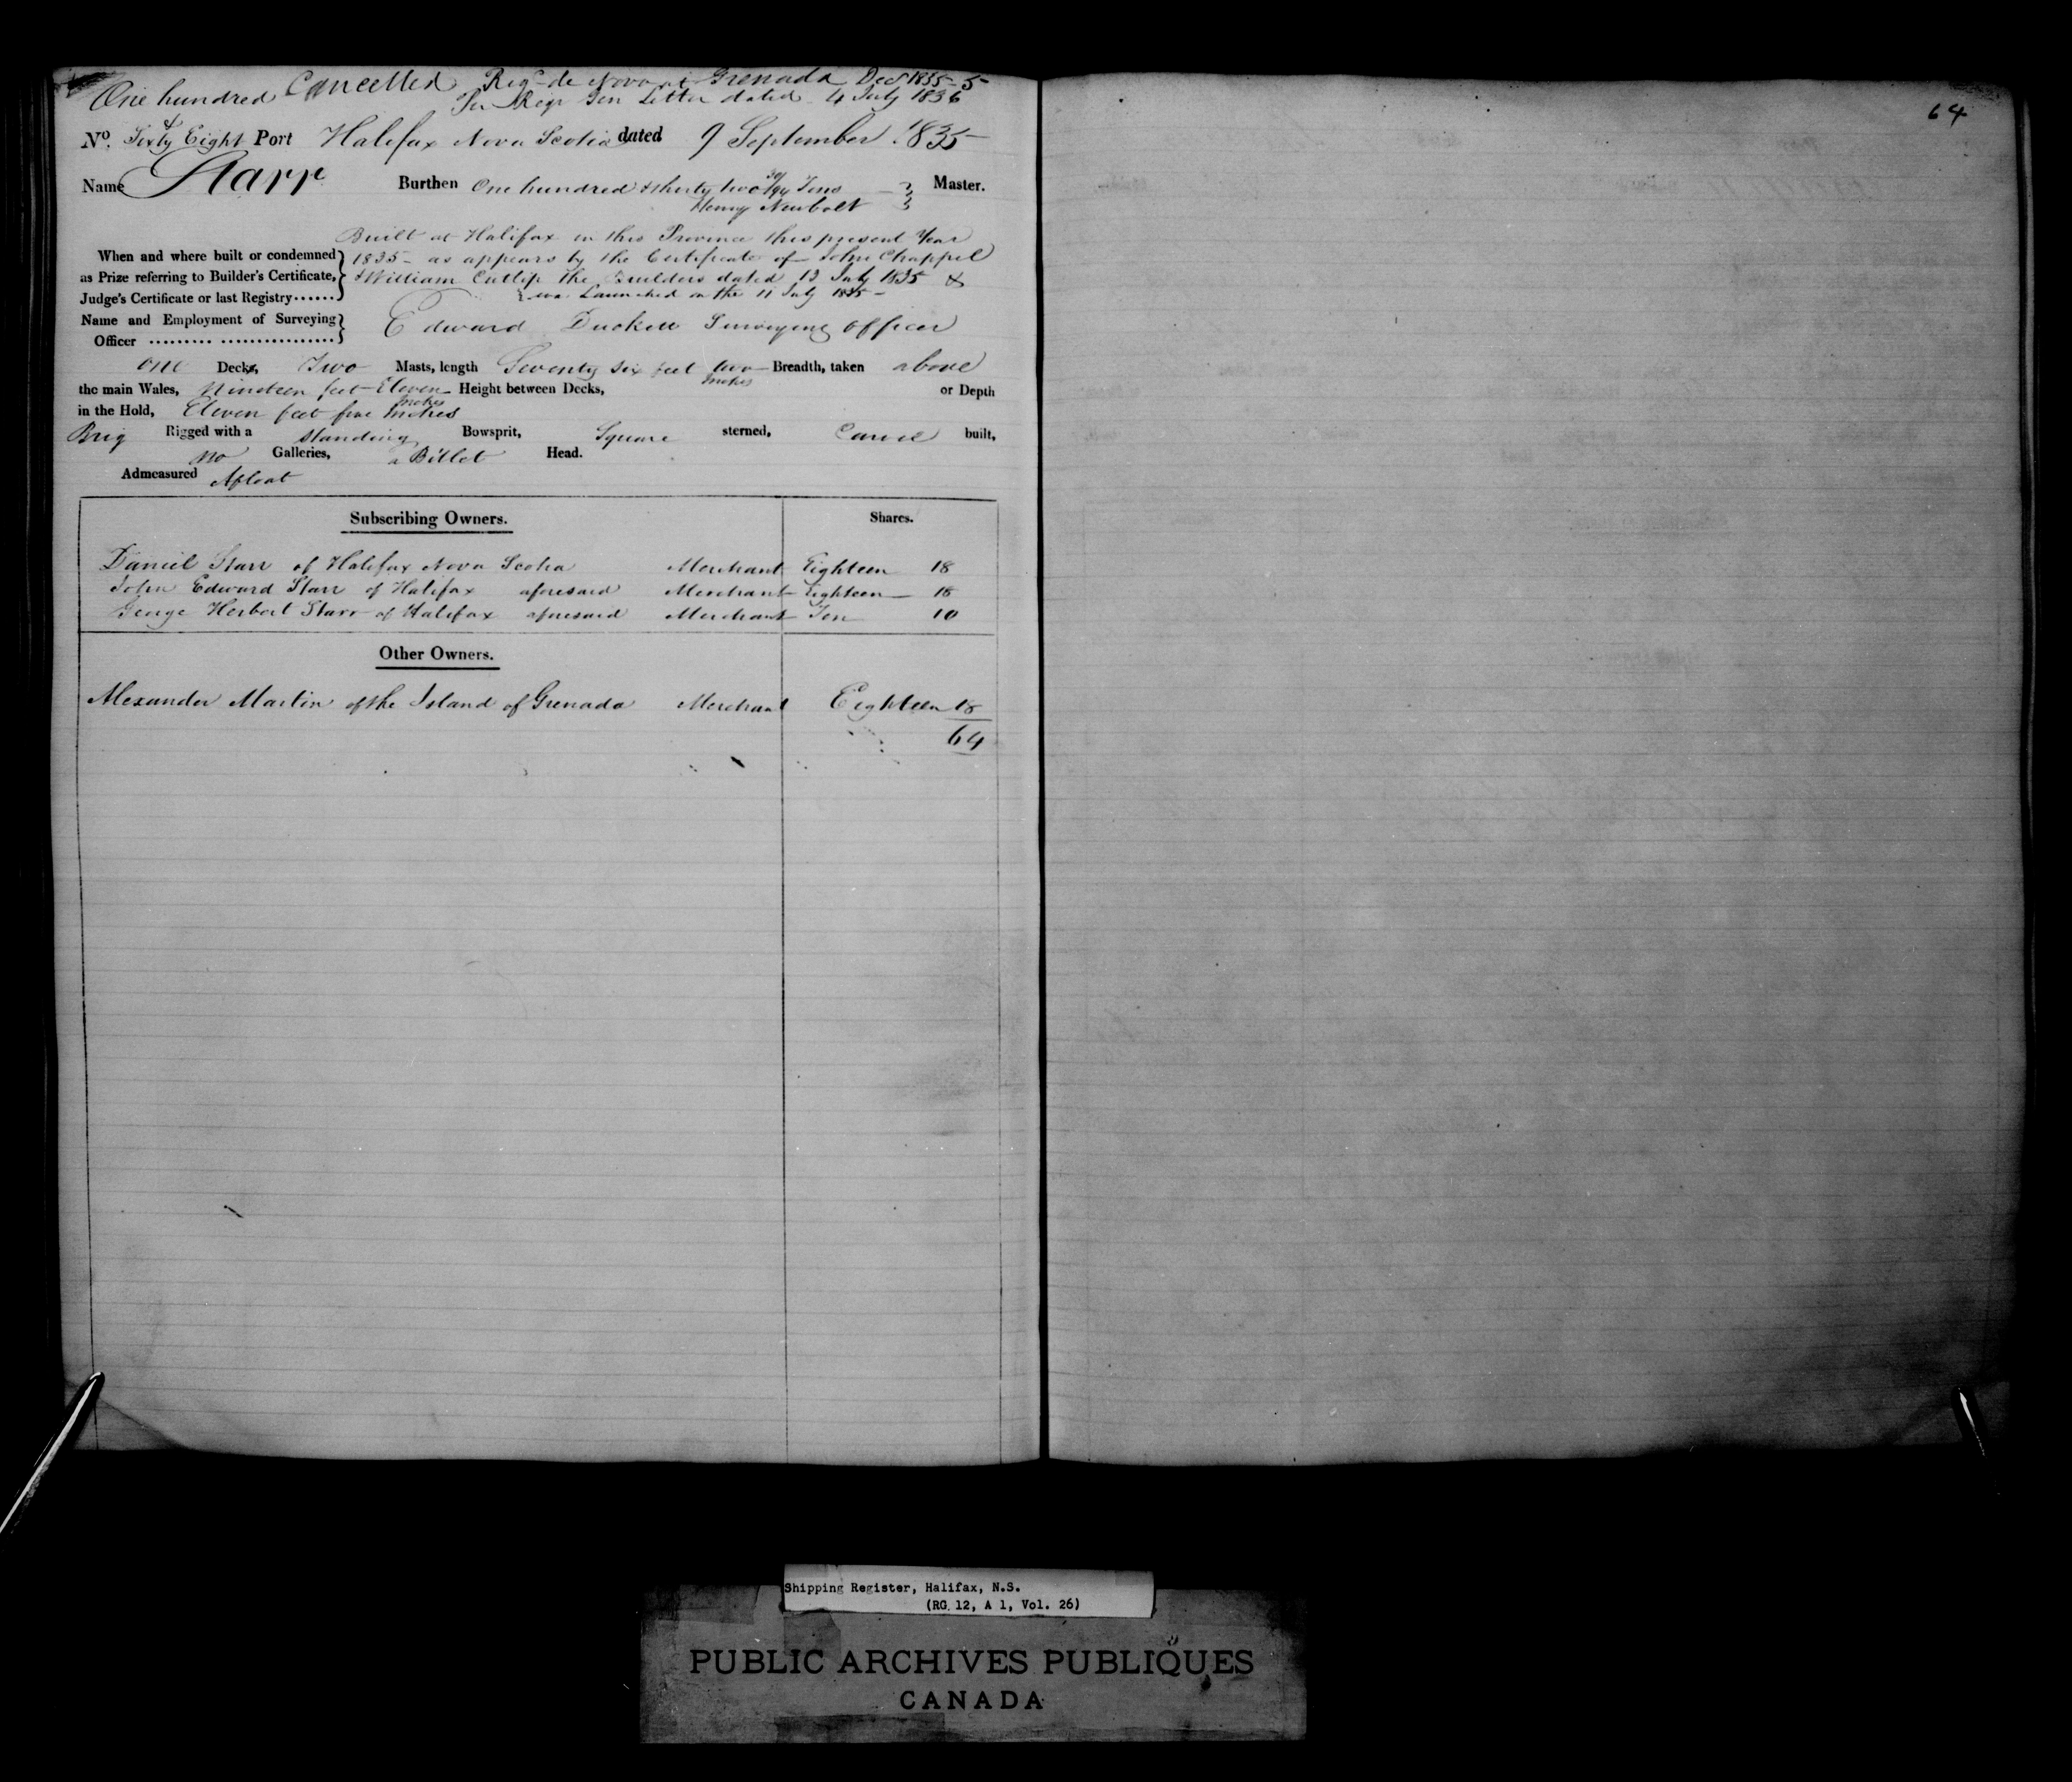 Cancelled Regd de Novo at Grenada Decr 1835
One hundred Per Regr Gen Letter dated 4 July 1836
64
No. & Sixty Eight Port Halifax Nova Scotia dated 9 September 1835
Name Starr Burthen One hundred & thirty two Tons Master.
Henry Newbolt
Built at Halifax in this Province this present Year
When and where built or condemned 1835 - as appears by the Certificate of John Chappel
as Prize referring to Builder's Certificate, & William Cutlip the Builders dated 13 July 1835 &
Judge's Certificate or last Registry...... was Launched on the 11 July 1835 -
Name and Employment of Surveying Edward Duckett Surveying Officer
Officer ......... ................
One Decks, Two Masts, length Seventy six feet two Inches Breadth, taken above
the main Wales, Nineteen feet Eleven Inches Height between Decks, or Depth
in the Hold, Eleven feet five Inches
Brig Rigged with a standing Bowsprit, Square sterned, Carvel built,
no Galleries, a Billet Head.
Admeasured Afloat
Subscribing Owners. Shares.
Daniel Starr of Halifax Nova Scotia Merchant Eighteen 18
John Edward Starr of Halifax aforesaid Merchant Eighteen 18
George Herbert Starr of Halifax aforesaid Merchant Ten 10
Other Owners.
Alexander Martin of the Island of Grenada Merchant Eighteen 18
64
Shipping Register, Halifax, N.S.
(RG 12, A 1, Vol. 26)
PUBLIC ARCHIVES PUBLIQUES
CANADA